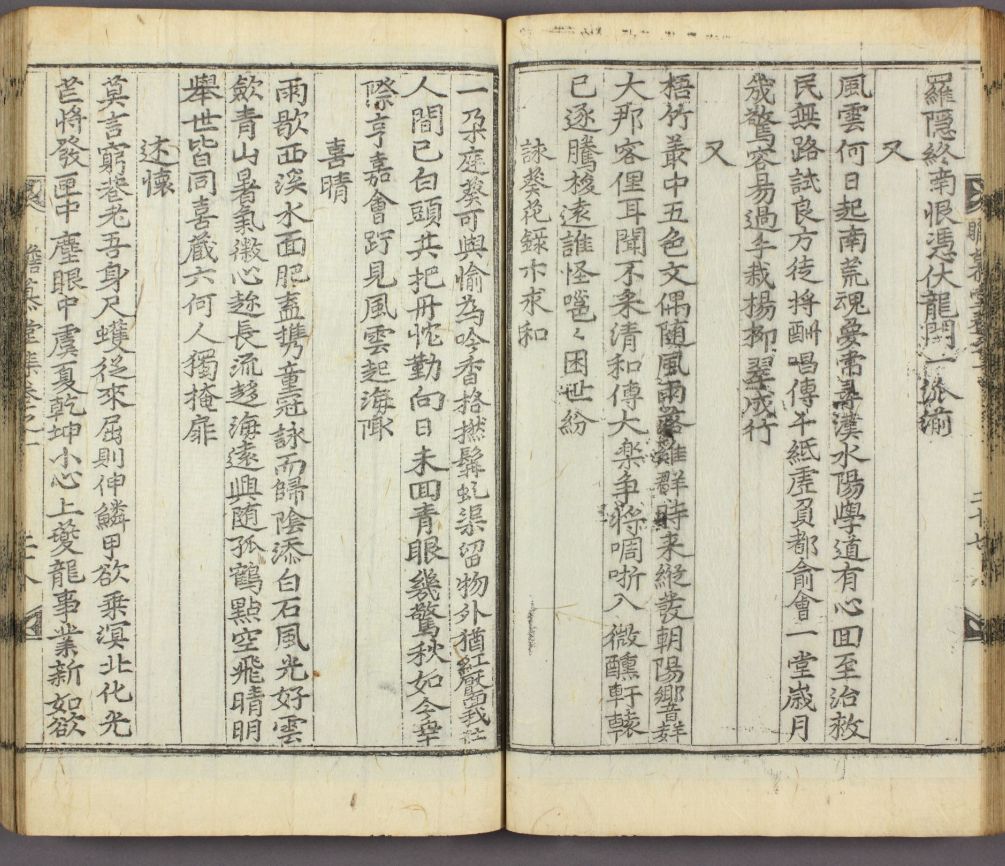 羅隱終南恨馮伏龍門一派偷
又
風雲何日起南荒魂夢常尋漢水陽學道有心回至治救
民無路試良方徒將酬唱傳牛紙虛負都俞會一堂歲月
幾驚容易過手栽楊柳翠成行
又
梧竹叢中五色文偶随風雨落雞群時来縱發朝陽響莫
大那容俚耳聞不柰清和傳大樂争將啁哳入微醺軒轅
已逐騰梭遠誰怪嗈〻困世紛
詠葵花錄示求和
一朶庭葵可與愉為吟香格撚髯虬渠留物外猶紅厴我在
人間已白頭共把丹忱勤向日未回青眼幾驚秋如今幸
際亨嘉會跂見風雲起海陬
喜晴
雨歇西溪水面肥盍携童冠詠而歸陰添白石風光好雲
歛青山暑氣微心趂長流趍海遠興随孤鶴點空飛晴明
舉世皆同喜蔵六何人獨掩扉
述懷
莫言窮巷老吾身尺蠖從來屈則伸鱗甲欲乘溟北化光
芒將發匣中塵眼中虞夏乾坤小心上夔龍事業新如欲
慕堂集卷之一
二十八
二十七